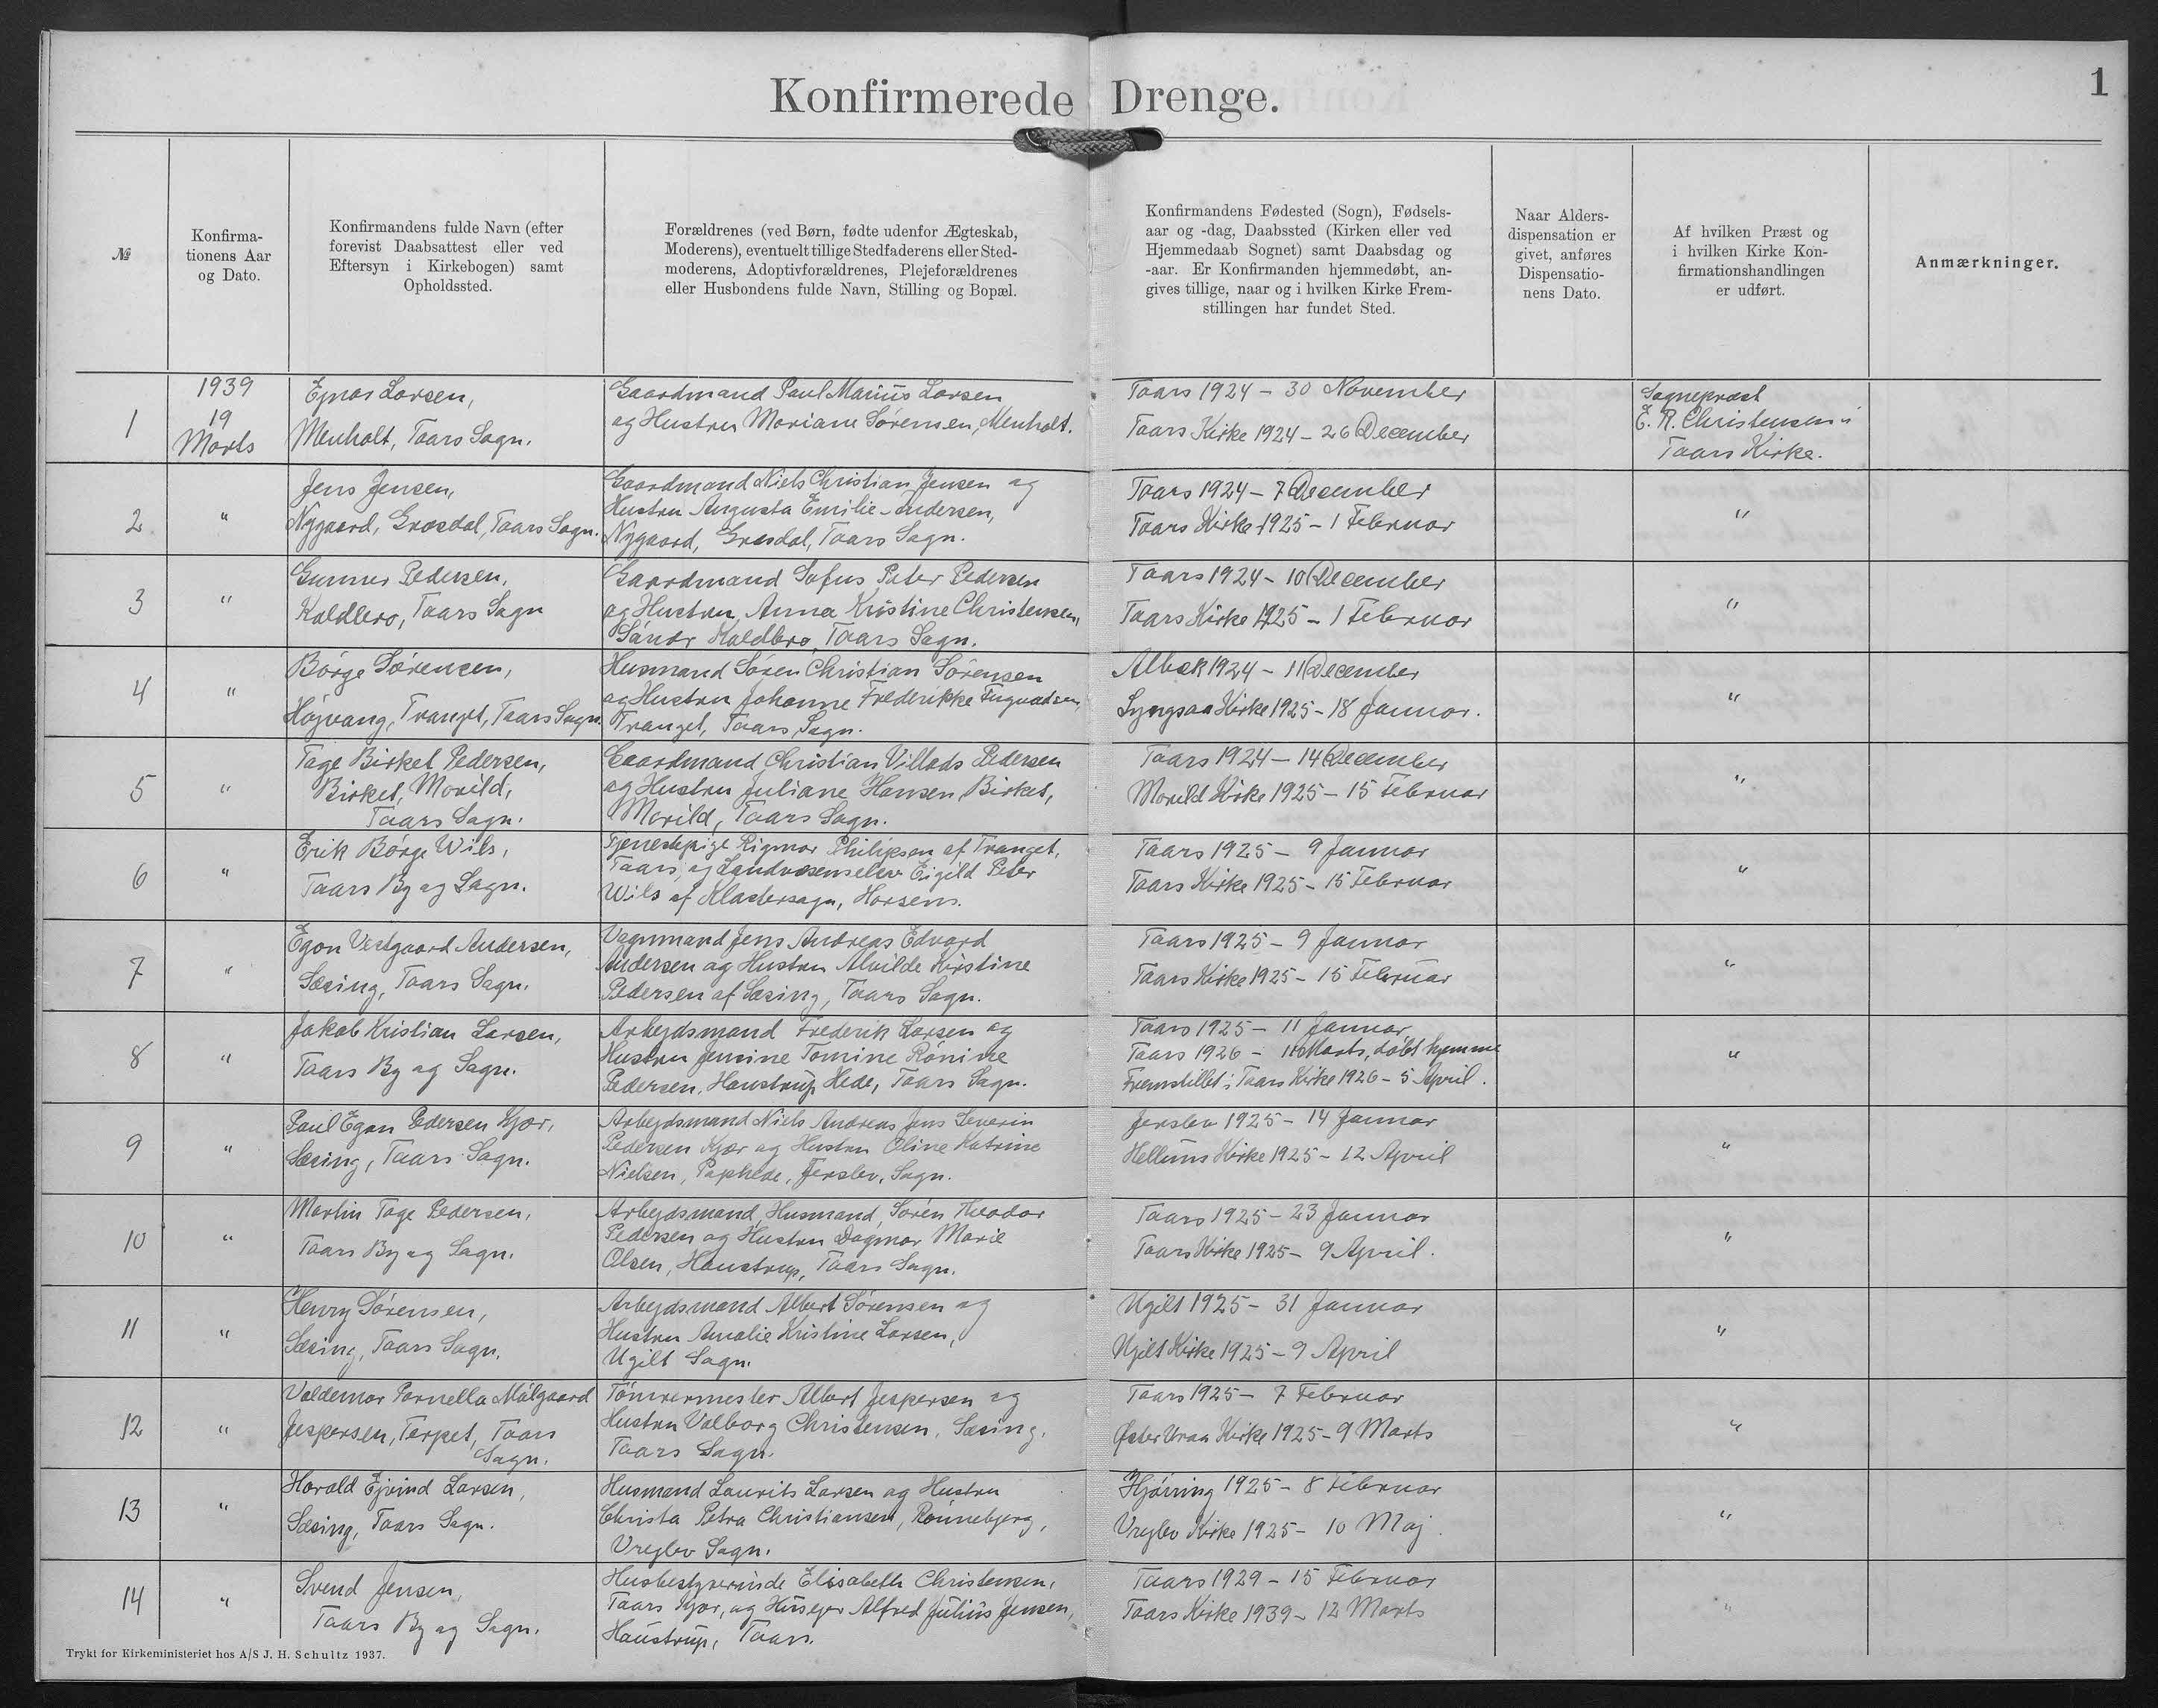 Konfirmerede Drenge.
1
№
Konfirma-
tionens Aar
og Dato.
Konfirmandens fulde Navn (efter
forevist Daabsattest eller ved
Eftersyn i Kirkebogen) samt
Opholdssted.
Forældrenes (ved Børn, fødte udenfor Ægteskab,
Moderens), eventuelt tillige Stedfaderens eller Sted-
moderens, Adoptivforældrenes, Plejeforældrenes
eller Husbondens fulde Navn, Stilling og Bopæl.
Konfirmandens Fødested (Sogn), Fødsels-
aar og -dag, Daabssted (Kirken eller ved
Hjemmedaab Sognet) samt Daabsdag og
-aar. Er Konfirmanden hjemmedøbt, an-
gives tillige, naar og i hvilken Kirke Frem-
stillingen har fundet Sted.
Naar Alders-
dispensation er
givet, anføres
Dispensatio-
nens Dato.
Af hvilken Præst og
i hvilken Kirke Kon-
firmationshandlingen
er udført.
Anmærkninger.
1
1939
19
Marts
Ejnar Larsen,
Menholt, Taars Sogn.
Gaardmand Paul Marius Larsen
og Hustru Mariane Sørensen, Menholt.
Taars 1924 - 30 November
Taars Kirke 1924 - 26 December
Sognepræst
E. R. Christensen i
Taars Kirke.
2
"
Jens Jensen,
Nygaard, Græsdal, Taars Sogn.
Gaardmand Niels Christian Jensen og
Hustru Augusta Emilie Andersen,
Nygaard, Græsdal, Taars Sogn.
Taars 1924 - 7 December
Taars Kirke 1925 - 1 Februar
"
3
"
Gunner Pedersen,
Kaldbro, Taars Sogn
Gaardmand Sofus Peter Pedersen
og Hustru, Anna Kristine Christensen,
Sønder Kaldbro, Taars Sogn.
Taars 1924 - 10 December
Taars Kirke 1925 - 1 Februar
"
4
"
Børge Sørensen,
Højvang, Tranget, Taars Sogn.
Husmand Søren Christian Sørensen
og Hustru Johanne Frederikke
Tranget, Taars Sogn.
Albæk 1924 - 11 December
Lyngsaa Kirke 1925 - 18 Januar.
"
5
"
Tage Birket Pedersen,
Birket, Morild,
Taars Sogn.
Gaardmand Christian Villads Pedersen
og Hustru Juliane Hansen, Birket,
Morild, Taars Sogn.
Taars 1924 - 14 December
Morild Kirke 1925 - 15 Februar
"
6
"
Erik Børge Wils,
Taars By og Sogn.
Tjenestepige Rigmor Philipsen af Tranget,
Taars, og Landvæsenselev Eigild Peter
Wils af Klostersogn, Horsens.
Taars 1925 - 9 Januar
Taars Kirke 1925 - 15 Februar
"
7
"
Egon Vestgaard Andersen,
Sæsing, Taars Sogn.
Vognmand Jens Andreas Edvard
Andersen og Hustru Alvilde Kirstine
Pedersen af Sæsing, Taars Sogn.
Taars 1925 - 9 Januar
Taars Kirke 1925 - 15 Februar
"
8
"
Jakob Kristian Larsen,
Taars By og Sogn.
Arbejdsmand Frederik Larsen og
Hustru Jensine Tomine Rønine
Pedersen, Haustrup Hede, Taars Sogn.
Taars 1925 - 11 Januar
Taars 1926 - Marts, døbt hjemme
Fremstillet i Taars Kirke 1926 - 5 April.
"
9
"
Poul Egon Pedersen Kjær,
Sæsing, Taars Sogn.
Arbejdsmand Niels Andreas Jens Severin
Pedersen Kjær og Hustru Oline Katrine
Nielsen, Paphede, Jerslev, Sogn.
Jerslev 1925 - 14 Januar
Hellums Kirke 1925 - 12 April
"
10
"
Martin Tage Pedersen,
Taars By og Sogn.
Arbejdsmand, Husmand, Søren Theodor
Pedersen og Hustru Dagmar Marie
Olsen, Haustrup, Taars Sogn.
Taars 1925 - 23 Januar
Taars Kirke 1925 - 9 April.
"
11
"
Henry Sørensen,
Sæsing, Taars Sogn.
Arbejdsmand Albert Sørensen og
Hustru Amalie Kristine Larsen,
Ugilt Sogn.
Ugilt 1925 - 31 Januar
Ugilt Kirke 1925 - 9 April
"
12
"
Valdemar Pornella Mølgaard
Jespersen, Terpet, Taars
Sogn.
Tømrermester Albert Jespersen og
Hustru Valborg Christensen, Sæsing,
Taars Sogn.
Taars 1925 - 7 Februar
Øster Vraa Kirke 1925 - 9 Marts
"
13
"
Harald Ejvind Larsen,
Sæsing, Taars Sogn.
Husmand Laurits Larsen og Hustru
Christa Petra Christiansen, Rønnebjerg,
Vrejlev Sogn.
Hjørring 1925 - 8 Februar
Vrejlev Kirke 1925 - 10 Maj.
"
14
"
Svend Jensen,
Taars By og Sogn.
Husbestyrerinde Elisabeth Christensen,
Taars Kjær, og Husejer Alfred Julius Jensen,
Haustrup, Taars.
Taars 1929 - 15 Februar
Taars Kirke 1939 - 12 Marts
"
Trykt for Kirkeministeriet hos A/S J. H. Schultz 1937.